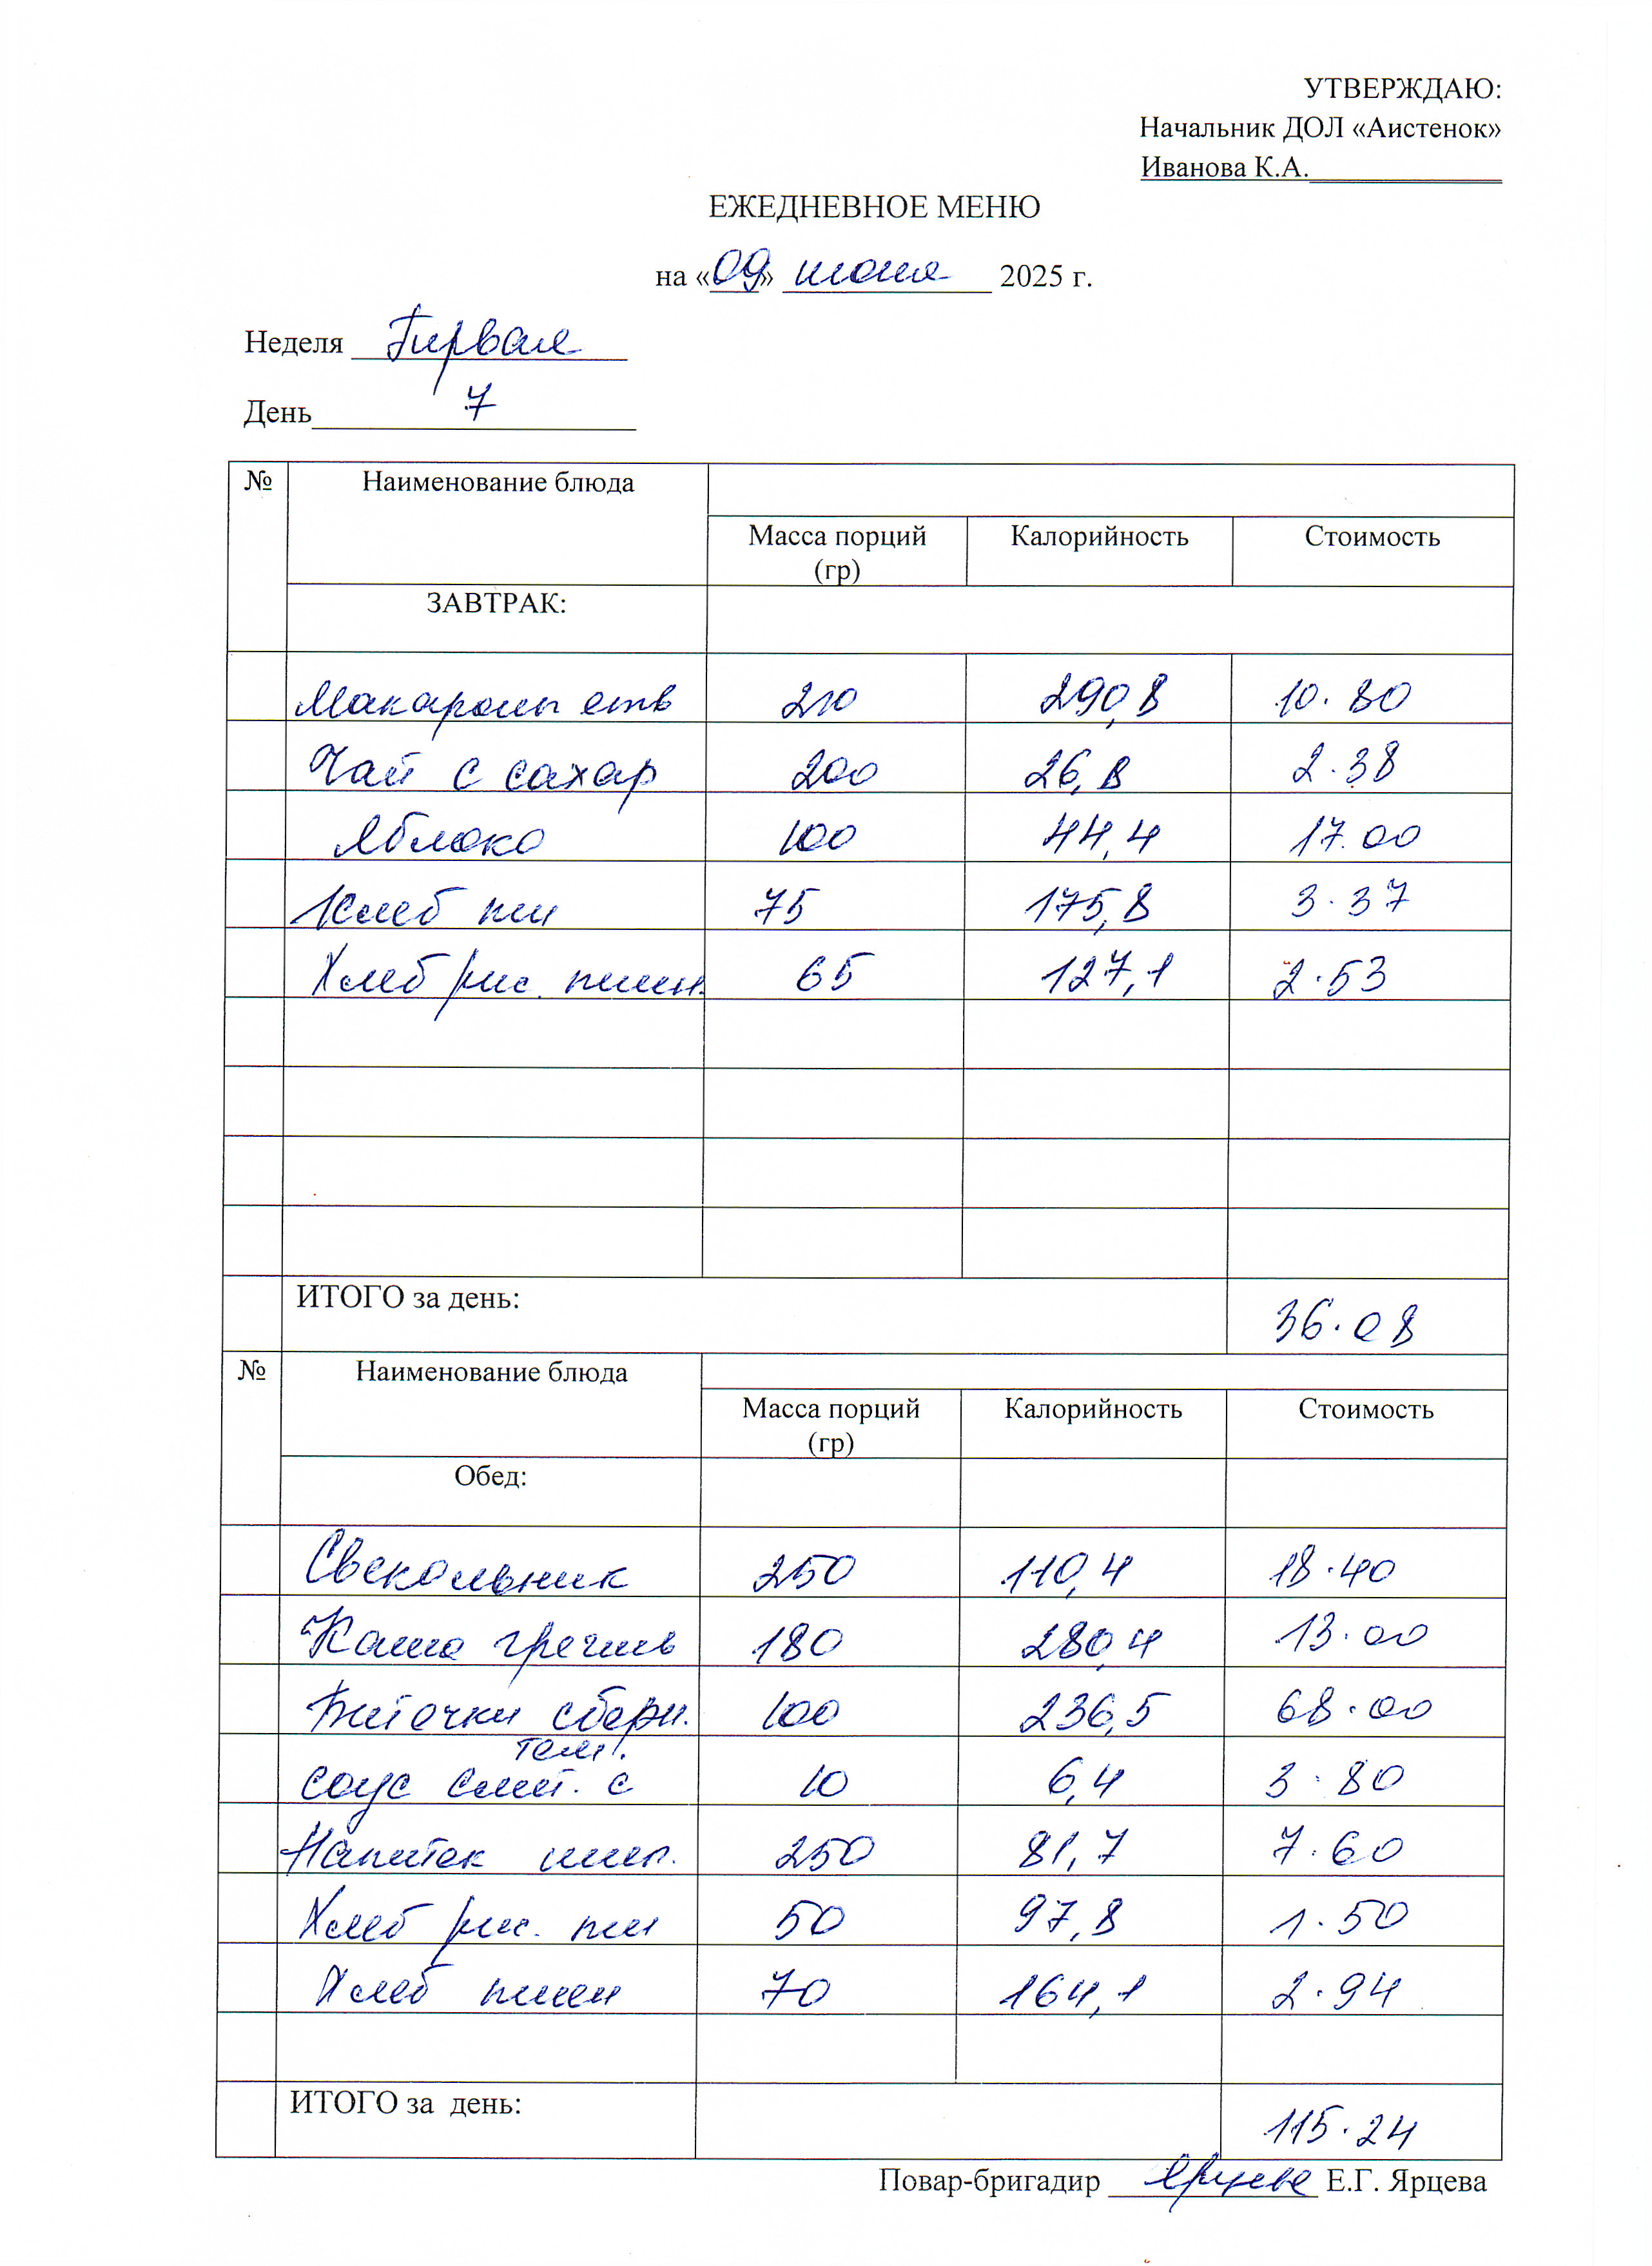 УТВЕРЖДАЮ:
Начальник ДОЛ «Аистенок»
Иванова К.А.
ЕЖЕДНЕВНОЕ МЕНЮ
на «09» июня 2025 г.
Неделя Первая
День 7
№ Наименование блюда
Масса порций (гр) Калорийность Стоимость
ЗАВТРАК:
Макароны отв 210 290,8 10.80
Чай с сахар 200 26,8 2.38
Яблоко 100 44,4 17.00
Хлеб пш 75 175,8 3.37
Хлеб рж. пшен. 65 127,1 2.53
ИТОГО за день: 36.08
№ Наименование блюда
Масса порций (гр) Калорийность Стоимость
Обед:
Свекольник 250 110,4 18.40
Каша гречнв 180 280,4 13.00
Биточки 100 236,5 68.00
том.
соус смет. с 10 6,4 3.80
Напиток шип. 250 81,7 7.60
Хлеб рж. пш 50 97,8 1.50
Хлеб пшен 70 164,1 2.94
ИТОГО за день: 115.24
Повар-бригадир Ярцева Е.Г. Ярцева